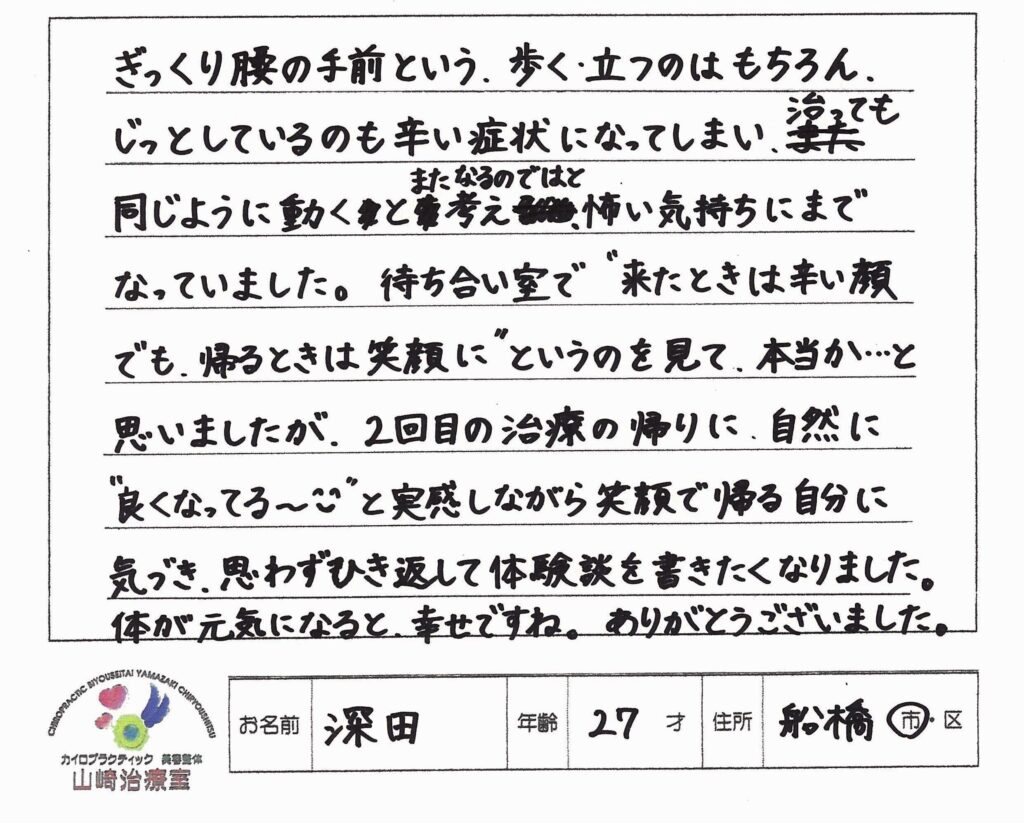 ぎっくり腰の手前という、歩く・立つのはもちろん、
じっとしているのも辛い症状になってしまい、治っても
同じように動くと考え、またなるのではと怖い気持ちにまで
なっていました。待ち合い室で〝来たときは辛い顔
でも、帰るときは笑顔に〟というのを見て、本当か…と
思いましたが、2回目の治療の帰りに、自然に
〝良くなってる〜〟と実感しながら笑顔で帰る自分に
気づき、思わずひき返して体験談を書きたくなりました。
体が元気になると、幸せですね。ありがとうございました。
CHIROPRACTIC BIYOUSEITAI YAMAZAKI CHIRYOUSHITSU
カイロプラクティック 美容整体
山崎治療室
お名前 深田 年齢 27 才 住所 船橋 市・区